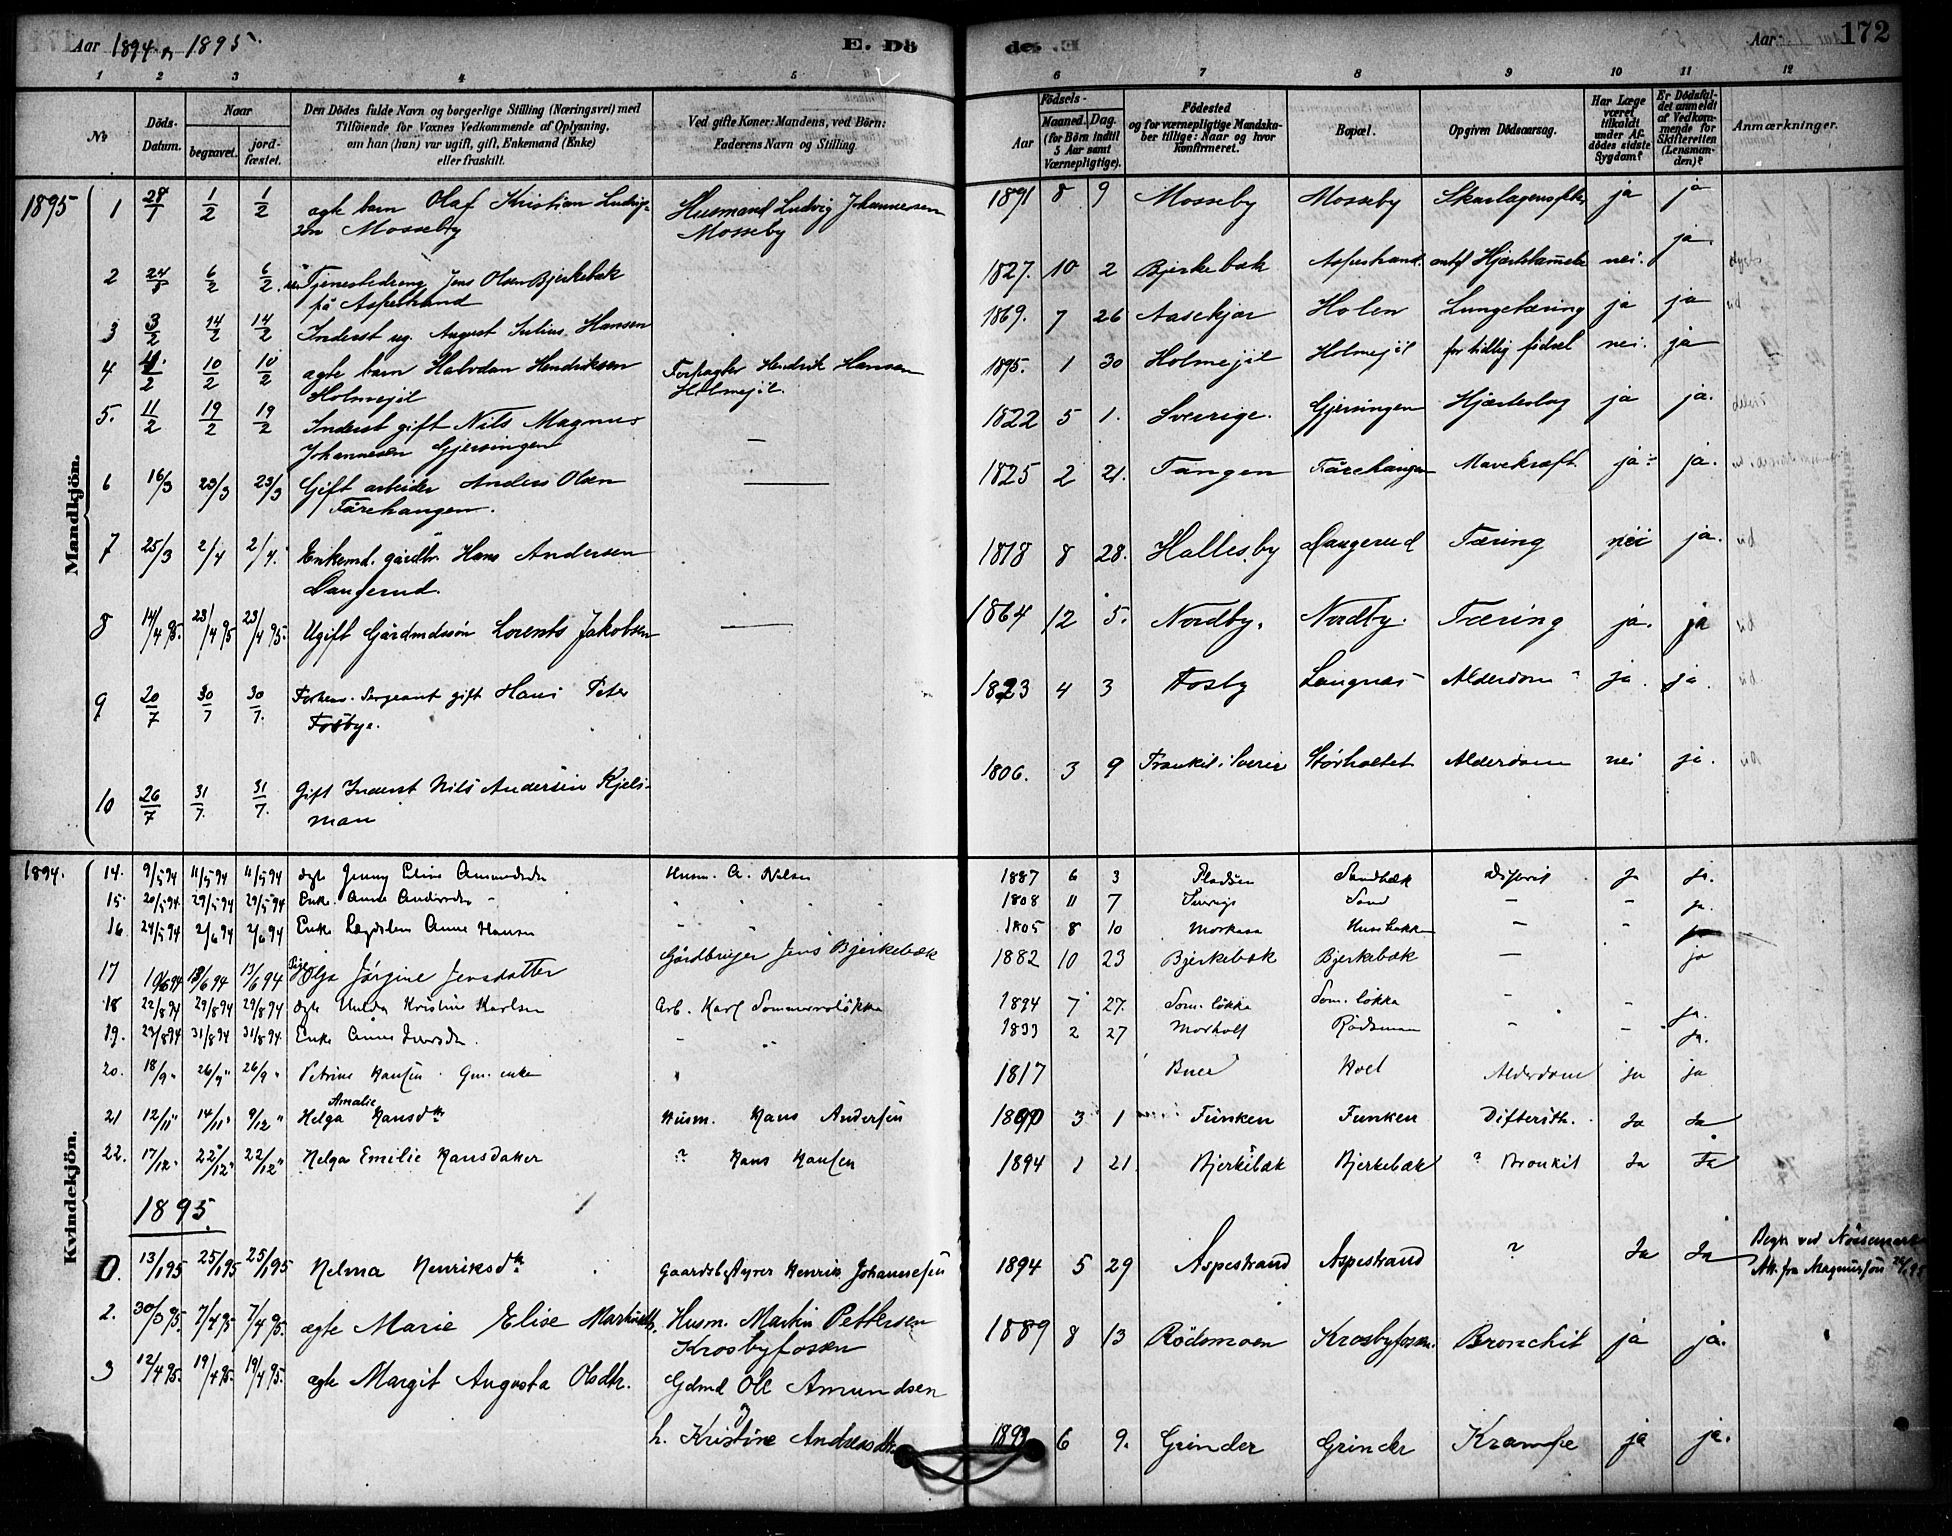 Aar 1894 og 1895. E. Dö
døde. E. Aar 172
1 2 3 4 5 6 7 8 9 10 11 12
No
Döds-Datum.
Naar
begravet.
jord-fæstet.
Den Dödes fulde Navn og borgerlige Stilling (Næringsvei) med
Tilföiende for Voxnes Vedkommende af Oplysning,
om han (hun) var ugift, gift, Enkemand (Enke)
eller fraskilt.
Ved gifte Koner: Mandens, ved Börn:
Faderens Navn og Stilling.
Födsels-
Aar
Maaned. Dag.
(for Börn indtil
5 Aar samt
Værnepligtige).
Födested
og for værnepligtige Mandska-
ber tillige: Naar og hvor
konfirmeret.
Bopæl.
Opgiven Dödsaarsag.
Har Læge
været
tilkaldt
under Af-
dödes sidste
Sygdom?
Er Dödsfal-
det anmeldt
af Vedkom-
mende for
Skifteretten
(Lensman-
den)?
Anmærkninger.
Mandkjön.
1895 1 28/1 1/2 1/2 ægte barn Olaf Kristian Ludvig- Husmand Ludvig Johannesen 1891 8 9 Mosseby Mosseby ja ja
sen Mosseby Mosseby
2 24/1 6/2 6/2 Tjenestedreng Jens Olsen Bjerkebæk 1827. 10 2 Bjerkebæk Aspestrand. nei. ja.
på Aspestrand
3 3/2 14/2 14/2 Inderst ug. August Julius Hansen 1869. 7 26 Aasekjær Holen Lungetæring ja ja
4 4/2 10/2 10/2 ægte barn Halvdan Hendriksen Forpagter Hendrik Hansen 1895. 1 30 Holmejil Holmejil for tidlig födsel nei. ja
Holmejil Holmejil.
5. 11/2 19/2 19/2 Inderst gift Nils Magnus — 1822 5 1. Sverrige. Gjersingen Hjerteslag ja ja.
Johannesen Gjersingen
6 16/3 23/3 23/3 Gift arbeider Anders Olsen — 1825 2 21. Tangen Fårehaugen Mavekræft ja ja.
Fårehaugen.
7 25/3 2/4 2/4. Enkemd. gårdbr. Hans Andersen 1818 8 28. Hallesby Daugerud Tæring nei ja.
Daugerud.
8 14/4 95. 23/4 95 23/4 95. Ugift Gårdmdssön Lorents Jakobsen — 1864 12 5. Nordby. Nordby. Tæring ja. ja
9 20/7 30/7 30/7. Forhens. Sergeant gift Hans Peter 1823 4 3 Fosby Langnæs Alderdom ja ja.
Fosby.
10 26/7 31/7. 31/7. Gift Inderst Nils Andersen Kjels- 1806. 3 9 i Sverige Alderdom nei ja.
man
Kvindekjön.
1894. 14. 9/5 94 11/5 94 11/5 94 ægte Jenny Eline Husm. A. Nilsen 1887 6 3 Sandbæk Difterit ja ja.
15. 20/5 94 29/5 94 29/5 94 Enke Anne 1808 11 7 Sverige Sand — - ja.
16. 24/5 94 2/6 94 2/6 94 Enke Lægdslem Anne Hansen 1805 8 10 — - ja
17 10/6 94 13/6 94 13/6 94 Pige Olga Jörgine Jensdatter Gårdbruger Jens Bjerkebæk 1882 10 23 Bjerkebæk Bjerkebæk — ja
18 22/8 94 29/8 94 29/8 94 ægte Hulda Kristine Karlsen Arb. Karl Sommerroløkka 1894 7 27. Som. løkka Som. løkka - - ja.
19. 23/8 94 31/8 94 31/8 94. Enke Anne 1833 2 27 - - ja.
20. 18/9 " 26/9 " 26/9 " Petrine Hansen Gm. enke " 1817 Buer Alderdom ja ja
21 12/11 " 14/11 " 9/12 " Helga Amalie Hansdtr Husm. Hans Andersen 1890 3 1 Funken Funken Difterith. Ja Ja
22. 17/12 " 22/12 " 22/12 " Helga Emilie Hansdatter ? Hans Hansen 1894 1 21. Bjerkebæk Bjerkebæk ? Bronkit Ja Ja
1895.
13/1 95 25/1 95 25/1 95 Helma Henriksdtr. Gaardsbestyrer Henrik Johannesen 1894 5 29 Aspestrand Aspestrand ? Ja Ja Begr. ved Nössemark
Att. fra Magnussen
2. 30/3 95. 7/4 95 7/4 95. ægte Marie Elise Husm. Martin Pettersen 1889 8 13 Rödsmoen Krosbyfossen. Bronchit ja ja.
Krosbyfossen
3 12/4 95. 19/4 95. 19/4 95. ægte Margit Augusta Olsdtr. Gdmd Ole Amundsen
h. Kristine Andersdtr. 1893 6 9. Grinder Grinder Krampe ja ja.